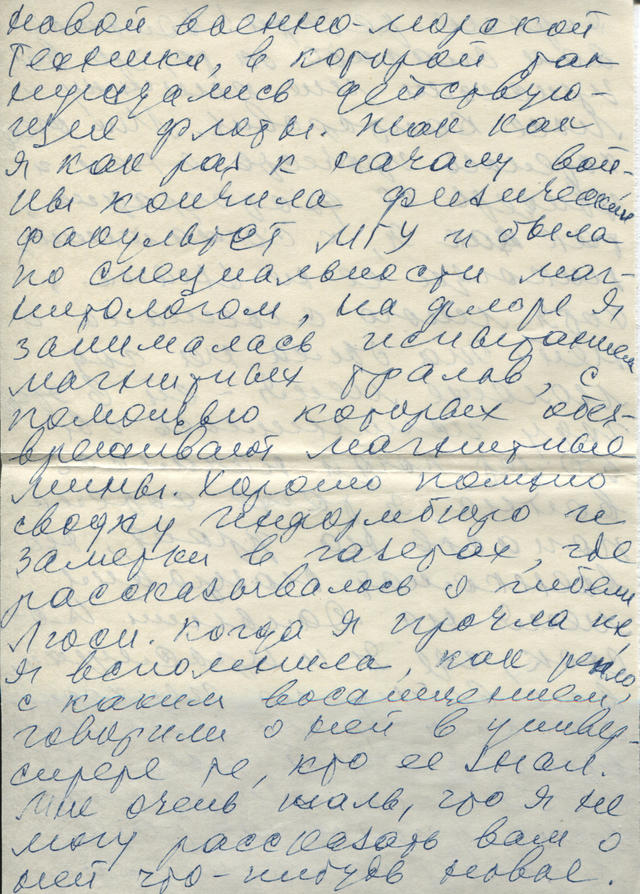 новой военно-морской
техники, в которой так
нуждались действую-
щие флоты. Так как
я как раз к началу вой-
ны кончила физический
факультет МГУ и была
по специальности маг-
нитологом, на флоте я
занималась испытанием
магнитных тралов, с
помощью которых обез-
вреживают магнитные
мины. Хорошо помню
сводку Информбюро и
заметки в газетах, где
рассказывалось о гибели
Люси. Когда я прочла их,
я вспомнила, как
с каким восхищением
говорили о ней в универ-
ситете те, кто ее знал.
Мне очень жаль, что я не
могу рассказать вам о
ней что-нибудь новое.